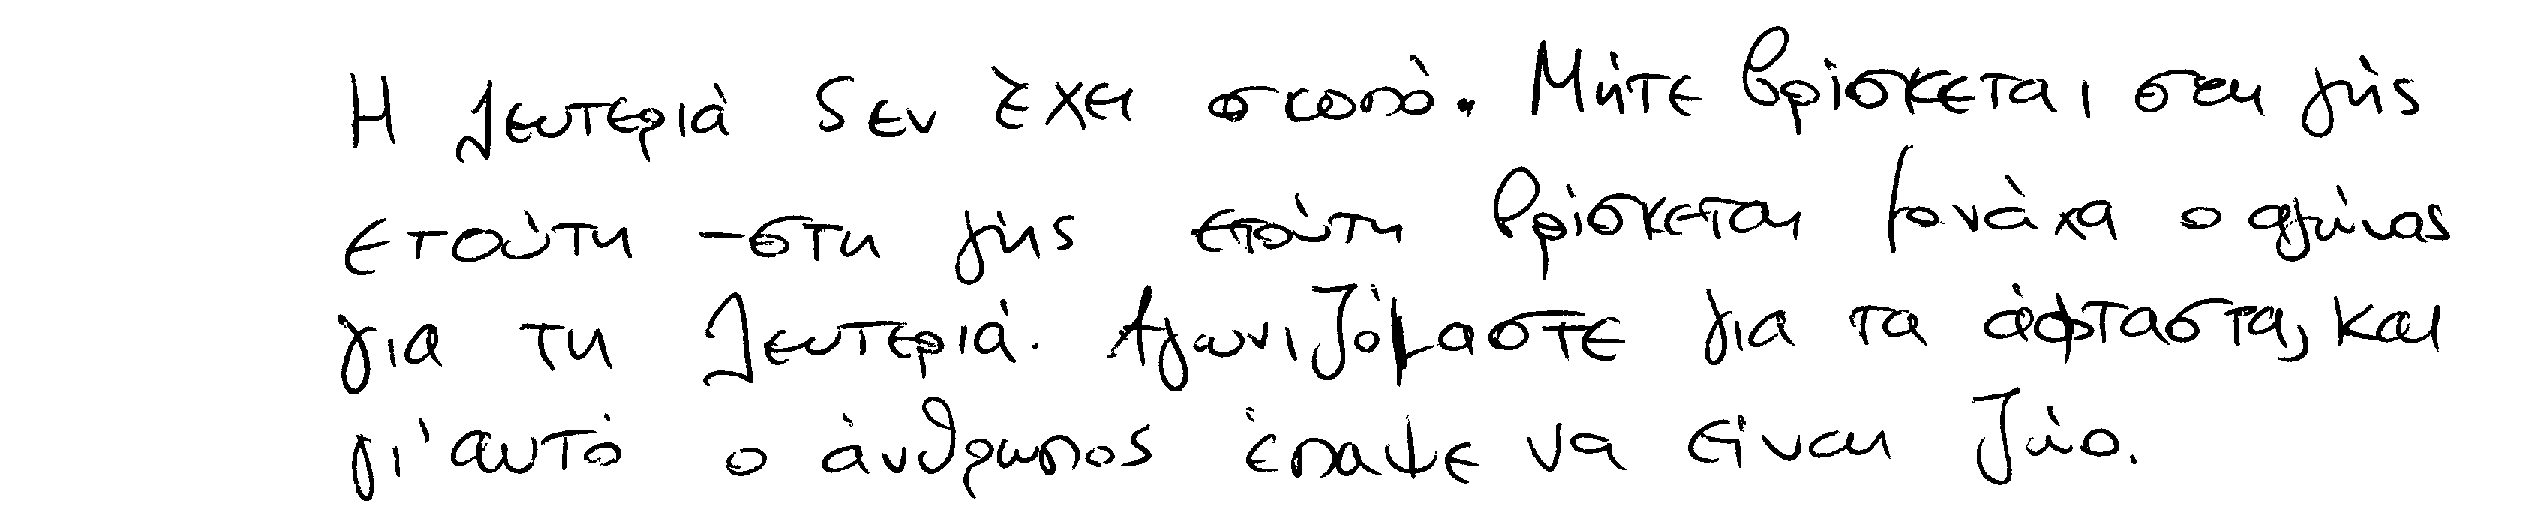 Η λευτεριά δεν έχει σκοπό. Μήτε βρίσκεται στη γής
ετούτη -στη γής ετούτη βρίσκεται μονάχα ο αγώνας
για τη λευτεριά. Αγωνιζόμαστε για τα άφταστα, και
γι'αυτό ο άνθρωπος έπαψε να είναι ζώο.